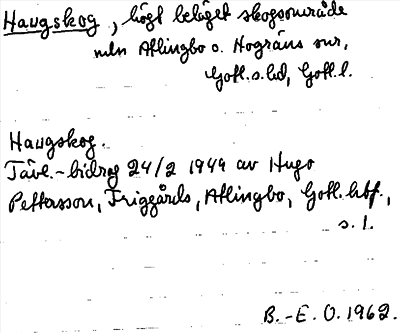 Haugskog, högt beläget skogsområde
mln Atlingbo o. Hogräns snr,
Gotl. s. hd, Gotl. l.
Haugskog.
Tävl.-bidrag 24/2 1944 av Hugo
Pettersson, Friggårds, Atlingbo, Gotl. hbf.,
s. 1.
B.-E. O. 1962.